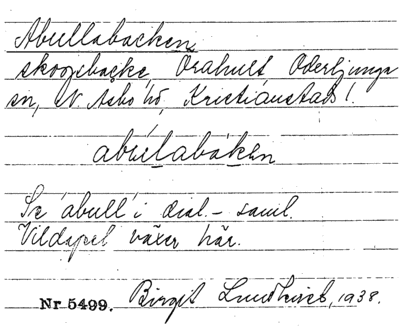 Abullabacken,
skogsbacke, Örahult Oderljunga
sn, N Åsbo hd, Kristianstads l.
abúllabáken
Se 'abull' i dial.-saml.
Vildapel växer här.
Nr 5499. Birgit Lundkvist, 1938.